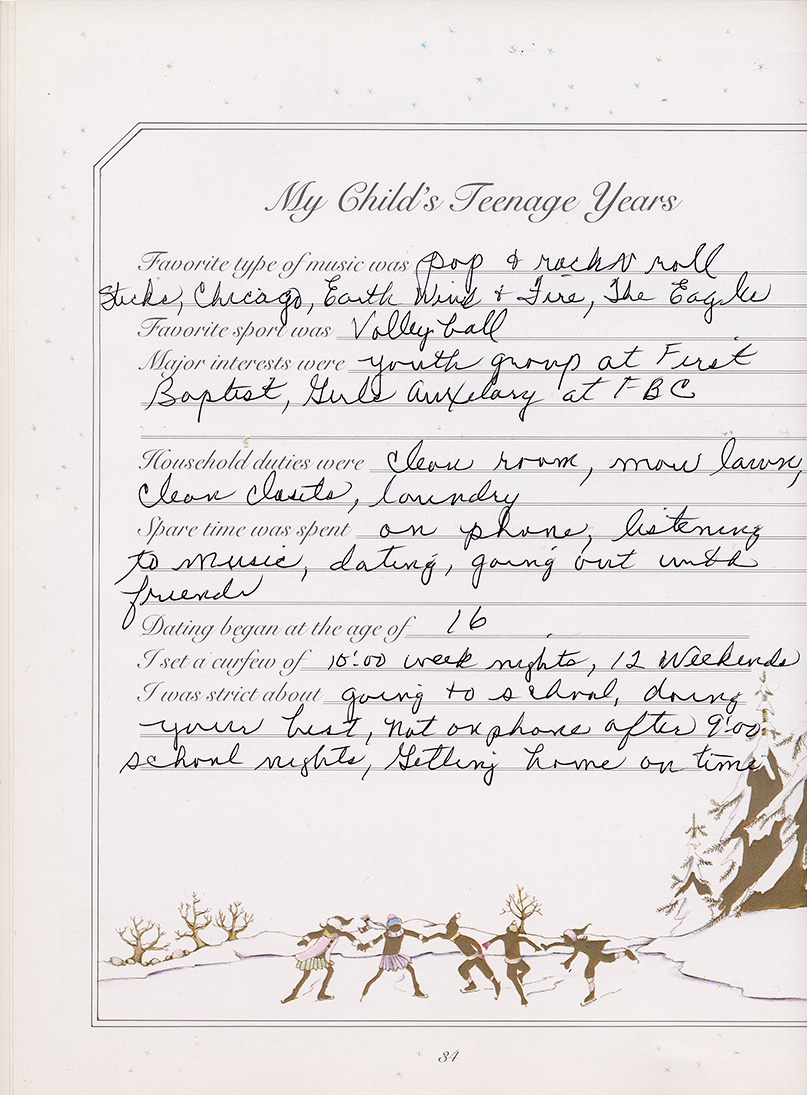 My Child's Teenage Years
Favorite type of music was pop & rock N roll
Sticks, Chicago, Earth Wind & Fire, The Eagle
Favorite sport was Volley ball
Major interests were youth group at First
Baptist, Girls Auxelary at FBC
Household duties were clean room, mow lawn,
clean closets, laundry
Spare time was spent on phone, listening
to music, dating, going out with
friends
Dating began at the age of 16
I set a curfew of 10:00 week nights, 12 Weekends
I was strict about going to school, doing
your best, not on phone after 9:00
school nights, Getting home on time
34